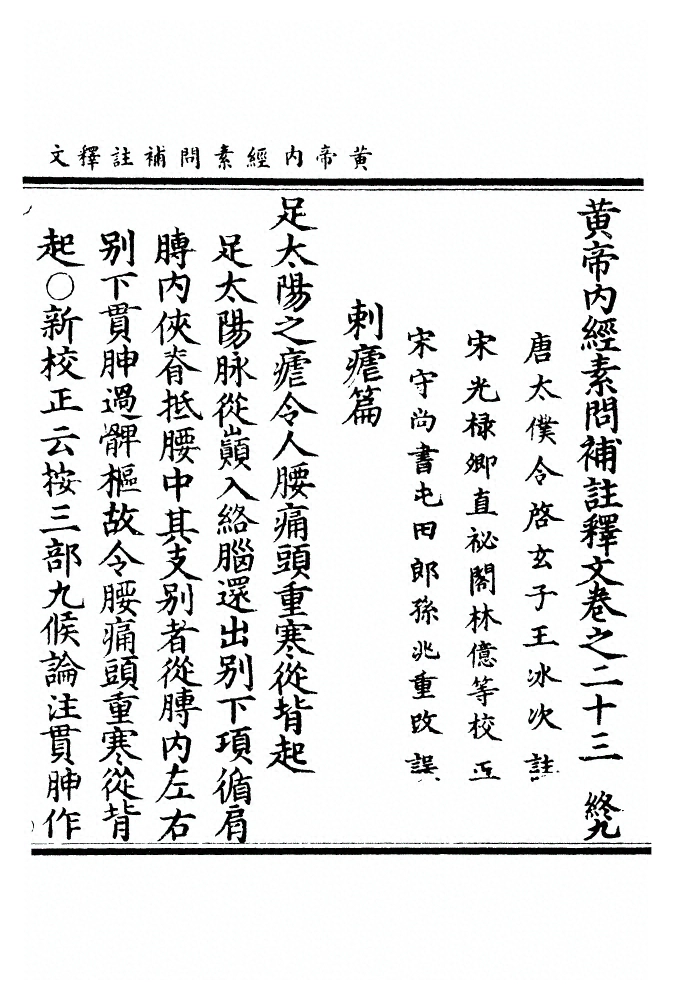 黄帝内經素問補註釋文
黄帝内經素問補註釋文卷之二十三 終九
唐太僕令啓玄子王冰次註
宋光祿卿直祕閣林億等校正
宋守尚書屯田郎孫兆重改誤
刺瘧篇
足太陽之瘧令人腰痛頭重寒從背起
足太陽脉從巔入絡腦還出别下項循肩
膊内俠脊抵腰中其支别者從膊内左右
别下貫胂過髀樞故令腰痛頭重寒從背
起○新校正云按三部九候論注貫胂作